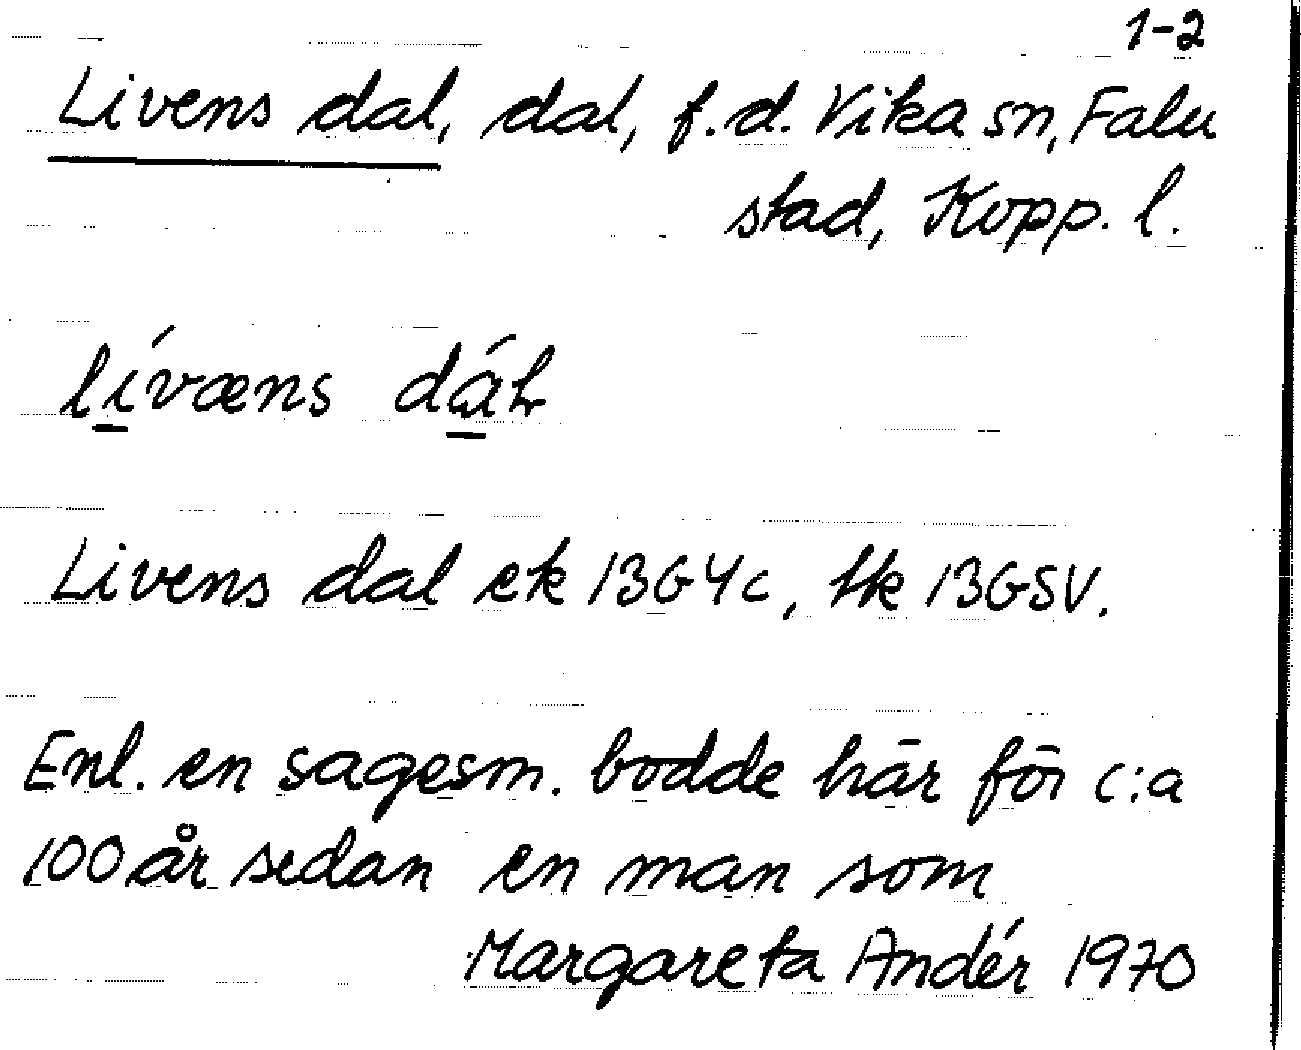 1-2
Livens dal, dal, f.d. Vika sn, Falu
stad, Kopp. l.
lívæns dáɫ
Livens dal ek 13G4c, tk 13GSV.
Enl. en sagesm. bodde här för c:a
100 år sedan en man som
Margareta Andér 1970